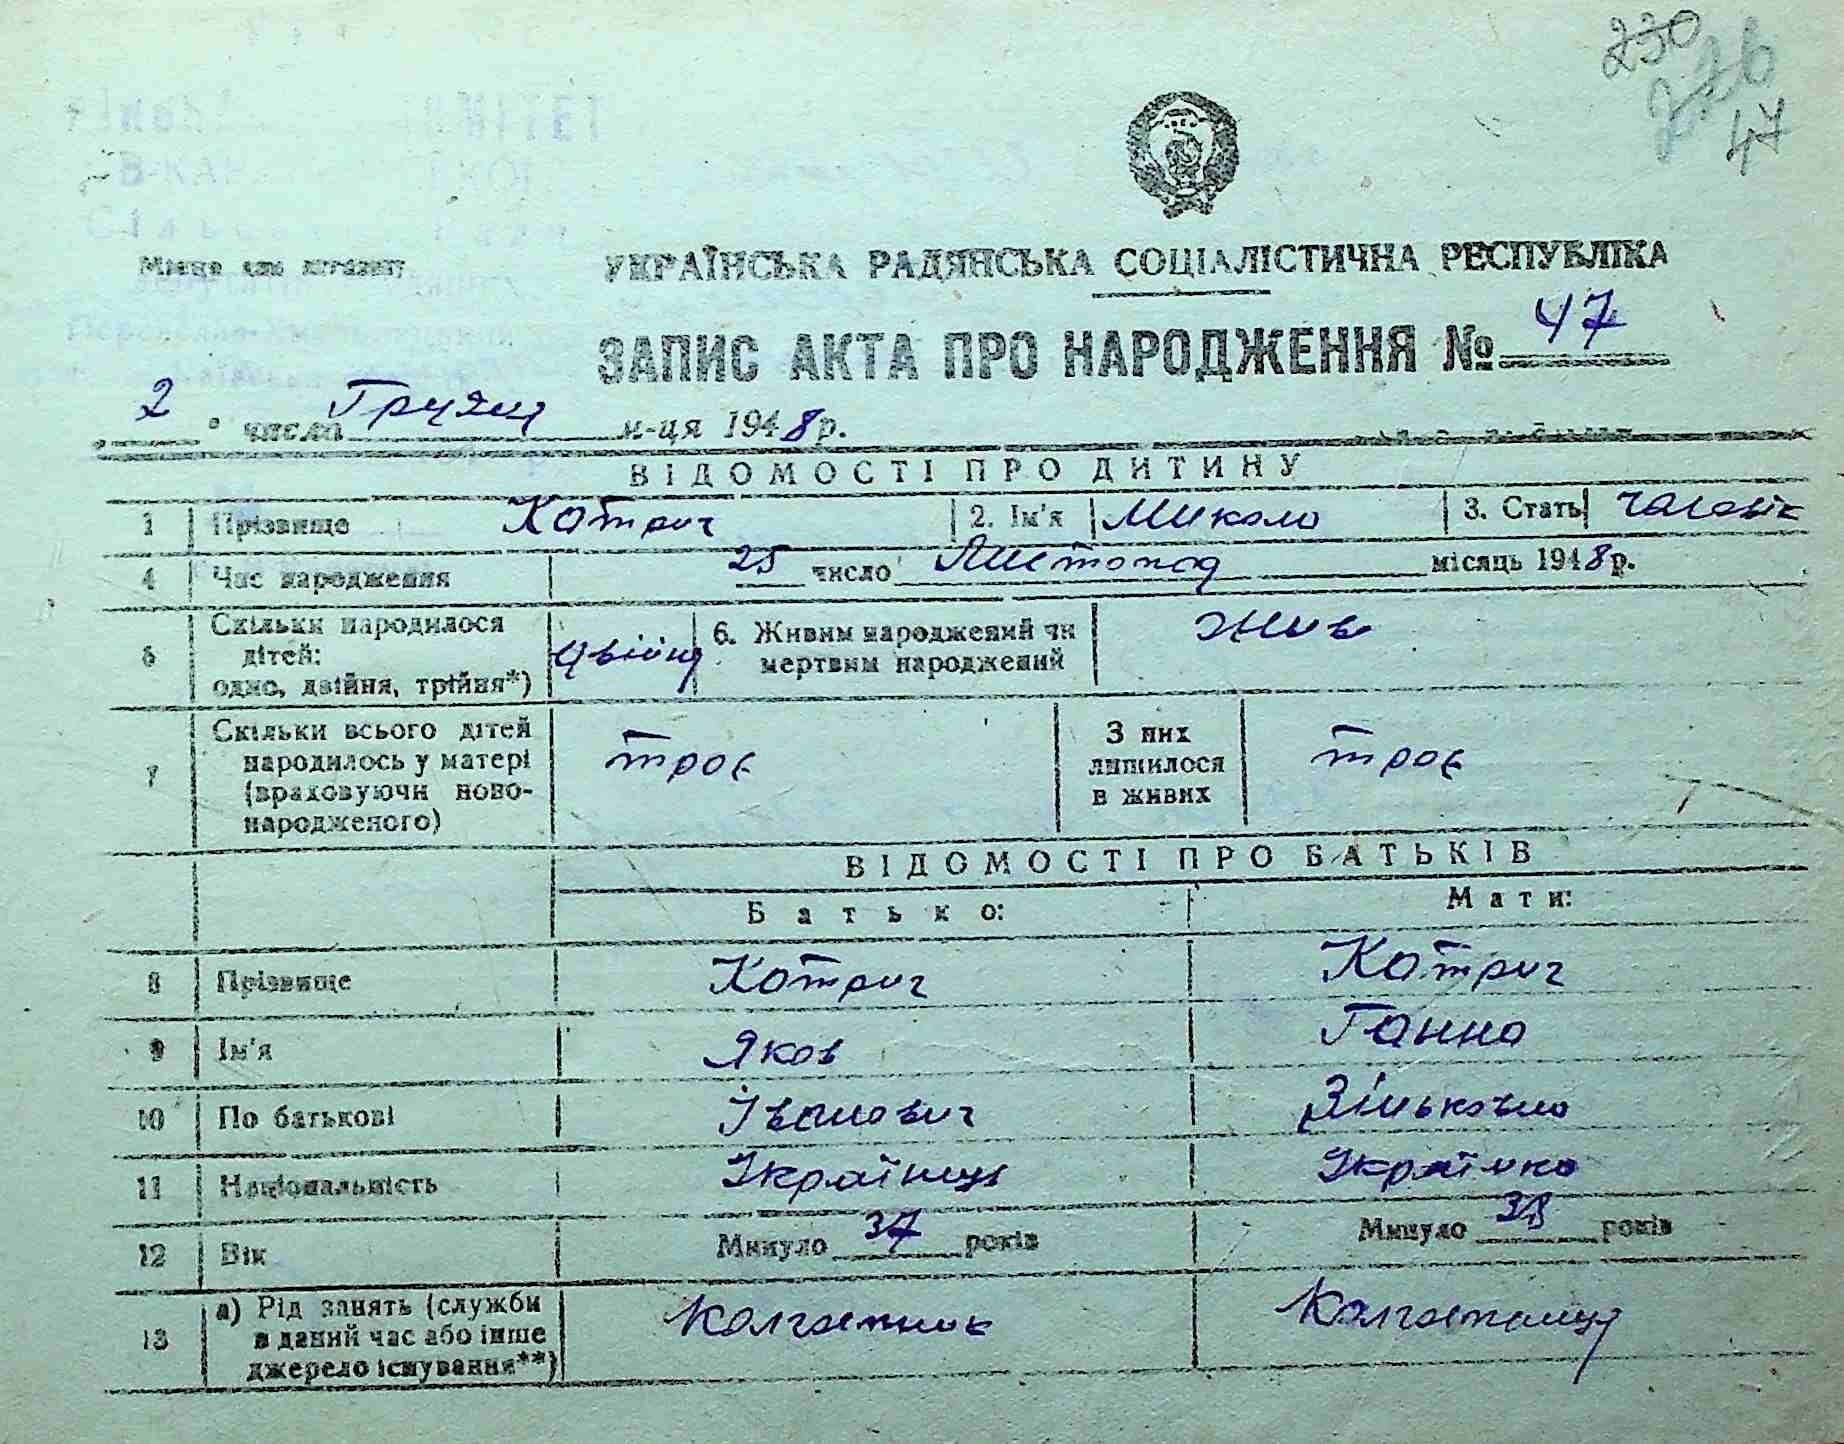 230
226
47
Місце для штампу
УКРАЇНСЬКА РАДЯНСЬКА СОЦІАЛІСТИЧНА РЕСПУБЛІКА
ЗАПИС АКТА ПРО НАРОДЖЕННЯ № 47
2 числа Грудня м-ця 1948 р.
ВІДОМОСТІ ПРО ДИТИНУ
1 Прізвище Котрич 2. Ім'я Микола 3. Стать чоловік
4 Час народження 25 число Листопад місяць 1948 р.
5 Скільки народилося дітей: одно, двійня, трійня*) двійня 6. Живим народжений чи мертвим народжений жив
7 Скільки всього дітей народилось у матері (враховуючи новонародженого) троє З них лишилося в живих троє
ВІДОМОСТІ ПРО БАТЬКІВ
Батько: Мати:
8 Прізвище Котрич Котрич
9 Ім'я Яков Ганна
10 По батькові Іванович Зіньковна
11 Національність Українець Українка
12 Вік Минуло 37 років Минуло 38 років
13 а) Рід занять (служби в даний час або інше джерело існування**) Колгоспник Колгоспниця